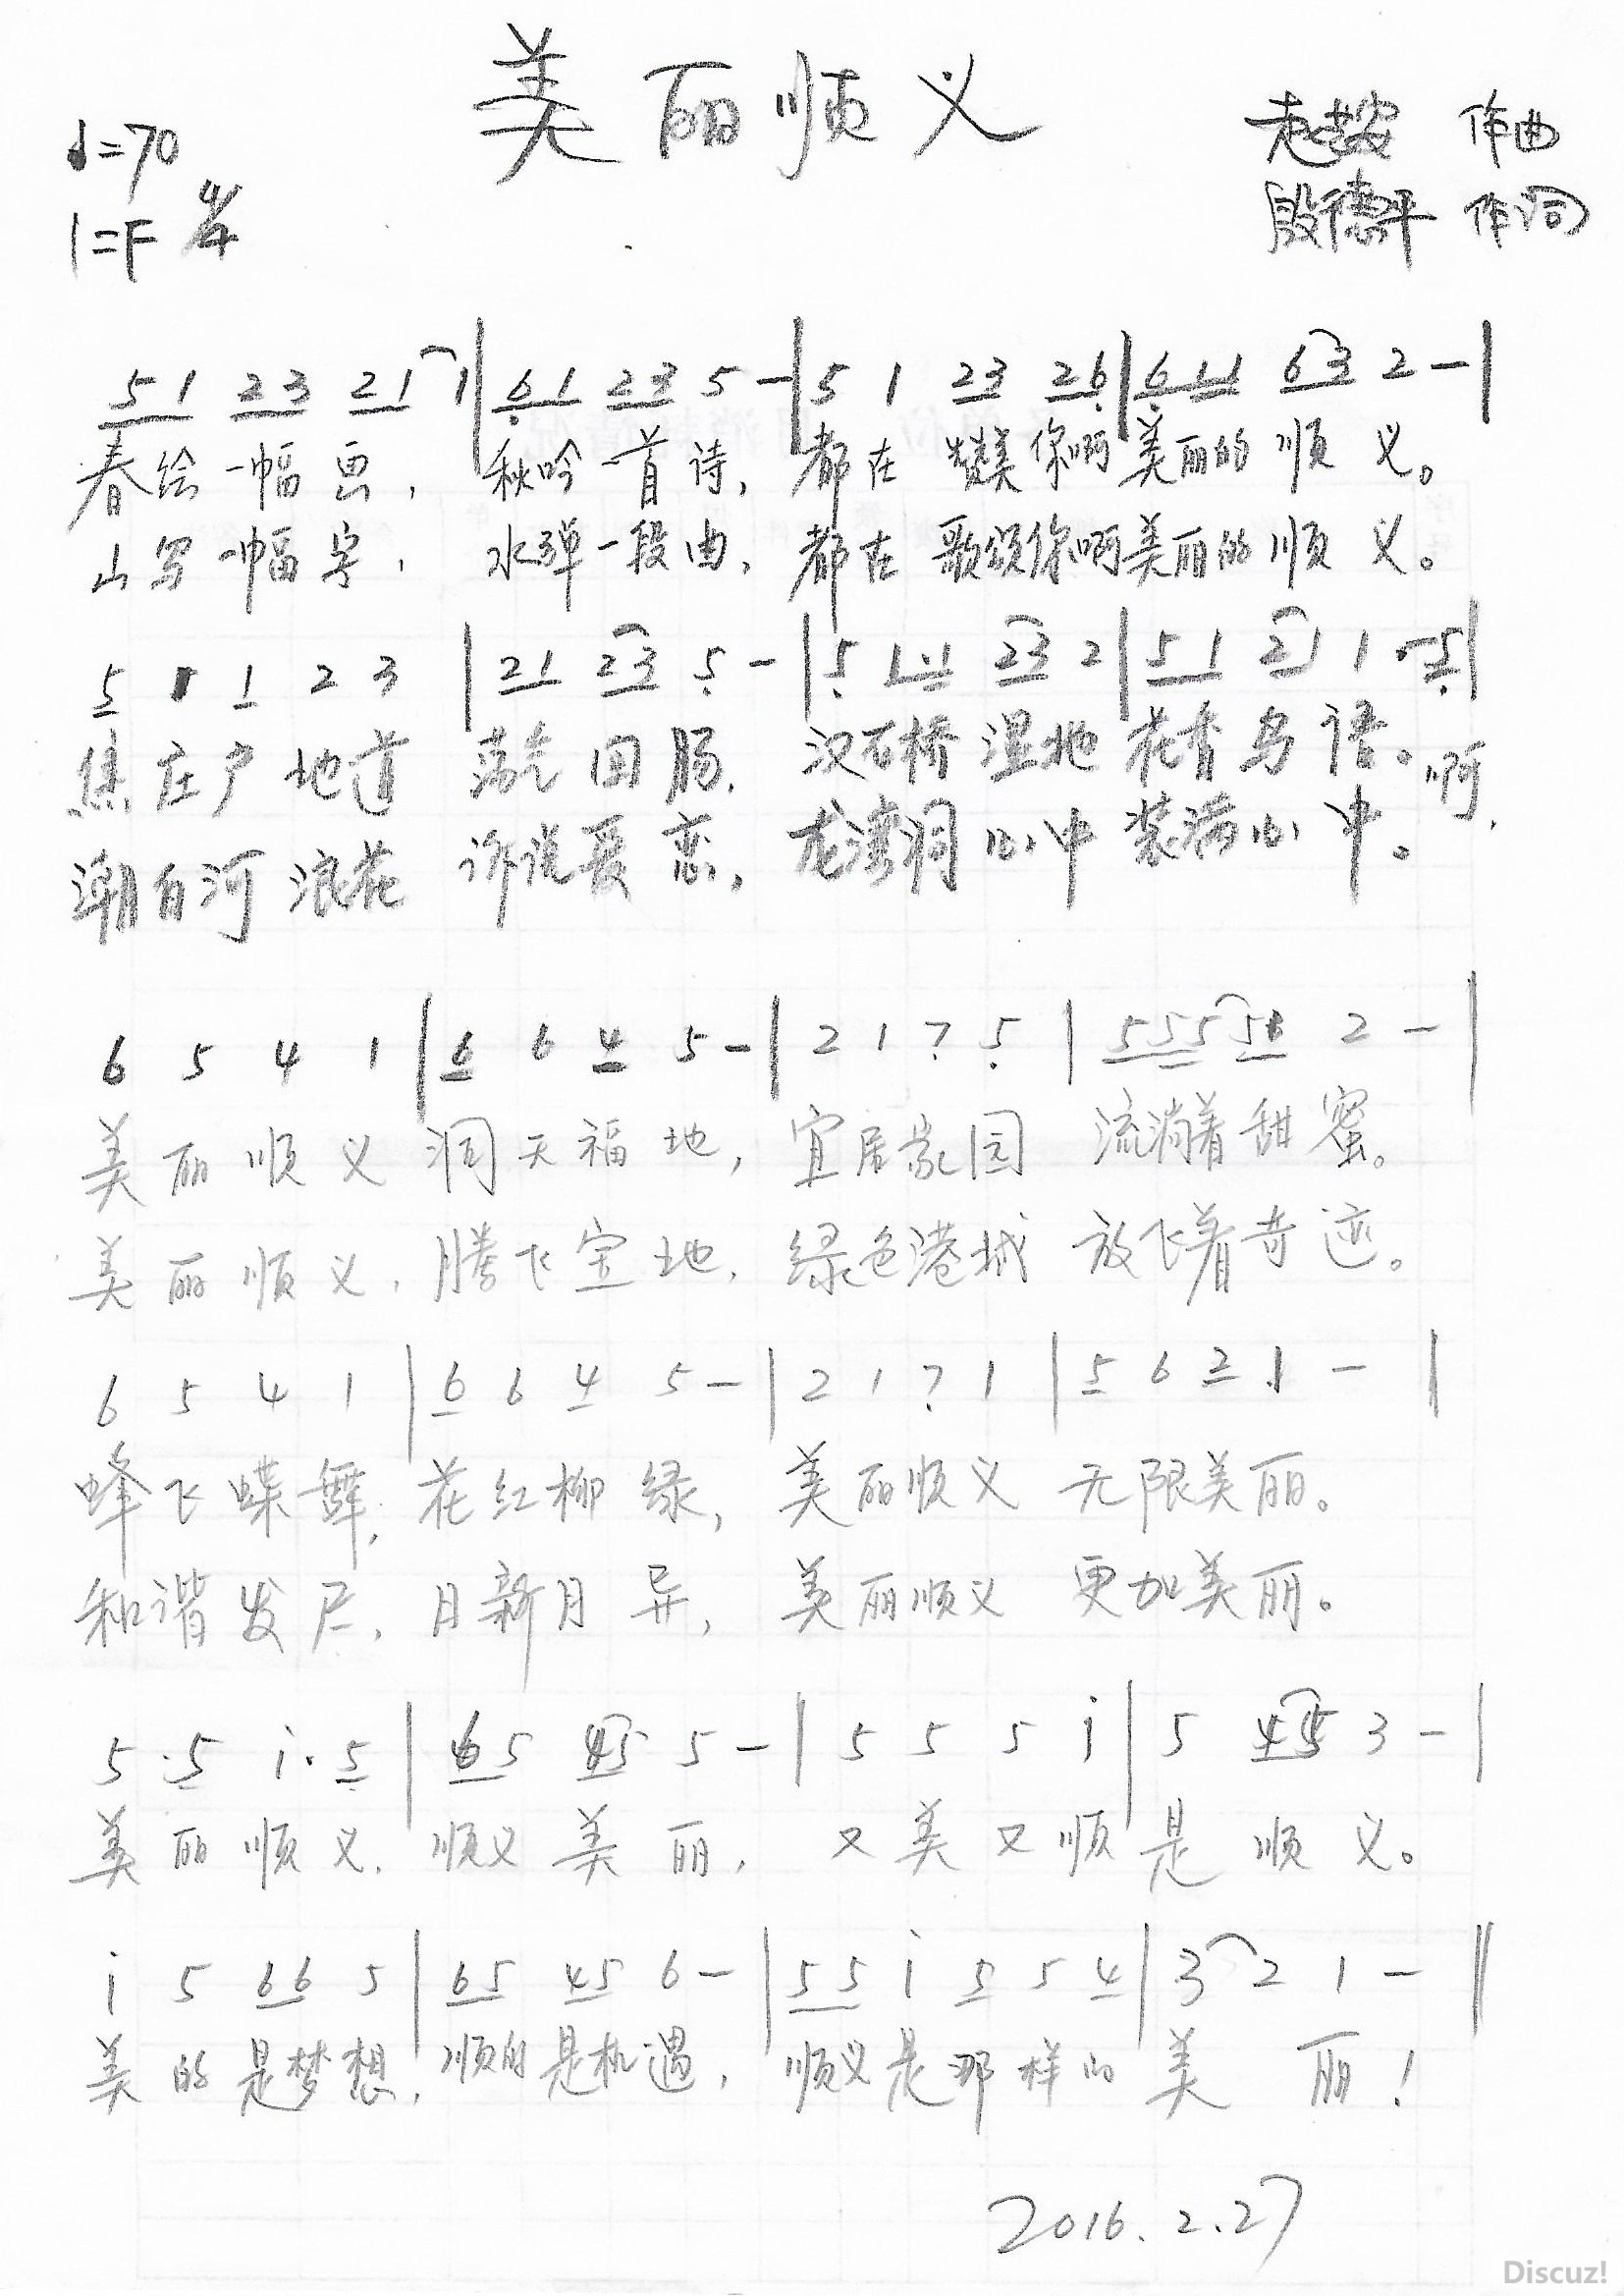 美丽顺义
♩=70
1=F 4/4
作曲
殷德平 作词
5 1 2 3 2 1 1 | 6 1 2 3 5 - | 5 1 2 3 2 6 | 6 1 1 6 3 2 - |
春绘一幅画，秋吟一首诗，都在赞美你啊美丽的顺义。
山写一幅字，水弹一段曲，都在歌颂你啊美丽的顺义。
5 1 1 2 3 | 2 1 2 3 5 - | 5 1 1 1 2 3 2 | 5 1 2 1 1 · 5 |
焦庄户地道 荡气回肠，汉石桥湿地 花香鸟语。啊，
潮白河浪花 诉说爱恋，龙湾洞心中 装满心中。
6 5 4 1 | 6 6 4 5 - | 2 1 7 5 | 5 5 5 5 6 2 - |
美丽顺义 洞天福地，宜居家园 流淌着甜蜜。
美丽顺义，腾飞宝地，绿色港城 放飞着奇迹。
6 5 4 1 | 6 6 4 5 - | 2 1 7 1 | 5 6 2 1 - |
蜂飞蝶舞，花红柳绿，美丽顺义 无限美丽。
和谐发展，日新月异，美丽顺义 更加美丽。
5 · 5 i · 5 | 6 5 4 5 5 - | 5 5 5 i | 5 4 5 3 - |
美丽顺义，顺义美丽，又美又顺是顺义。
i 5 6 6 5 | 6 5 4 5 6 - | 5 5 i 5 5 4 | 3 2 1 - ||
美的是梦想，顺的是机遇，顺义是那样的美丽！
2016.2.27
Discuz!